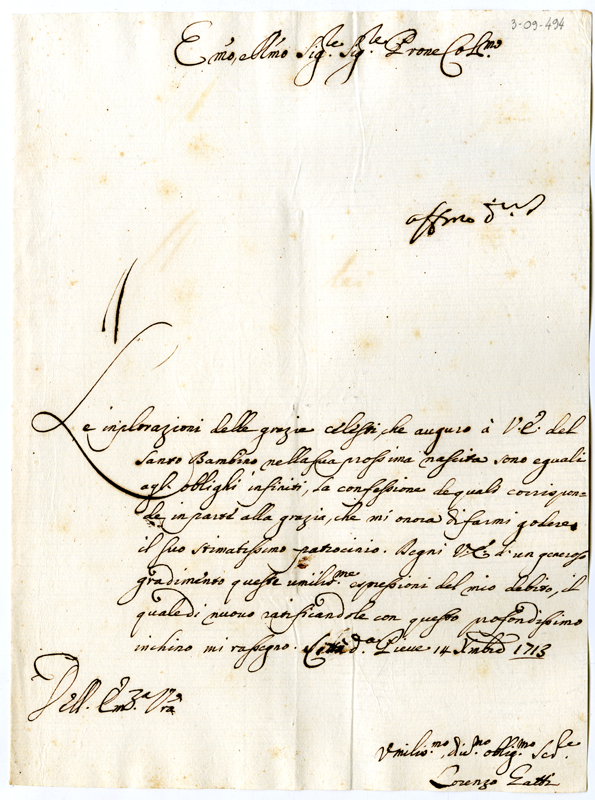 3-09-494
Em̃o, e R̃mo Sig.re Sig.re P̃rone Col.mo
Le inplorazioni delle grazie celesti, che auguro à V. E. del
Santo Bambino nella sua prossima nascita sono eguali
agl'oblighi infiniti, la confessione de quali corrispon-
de in parte alla grazia, che mi onora di farmi godere
il suo stimatissimo patrocinio. Degni V. E. d'un generoso
gradimento queste umiliss.me espressioni del mio debito, il
quale di nuovo ratificandole con questo profondissimo
inchino mi rassegno. Città d.a Pieve 14 Xmbre 1713
Dell' Em.za V̄ra
Vmilis.mo, diu.mo oblig.mo Ser.e
Lorenzo Gatti